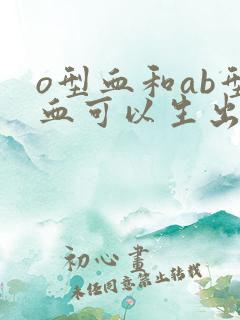 o型血和ab型
血可以生出
初心畫
未经同意禁止转载